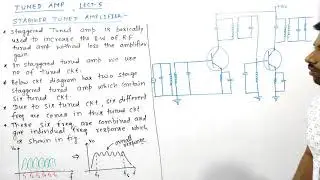 TUNED AMP LECT-5
STAGGER TUNED AMPLIFIER-
* Staggered Tuned amp is basically
used to increase the B.W of R.F
tuned amp without less the amplifier
gain.
* In staggered tuned amp we use
no of Tuned ckt.
* Below ckt diagram has two stage
staggered tuned amp which contain
six tuned ckt.
* Due to six tuned ckt, six different
freq are comes in this tuned ckt
* These six freq are combined and
give individual freq response which
is shown in fig.
overall
response